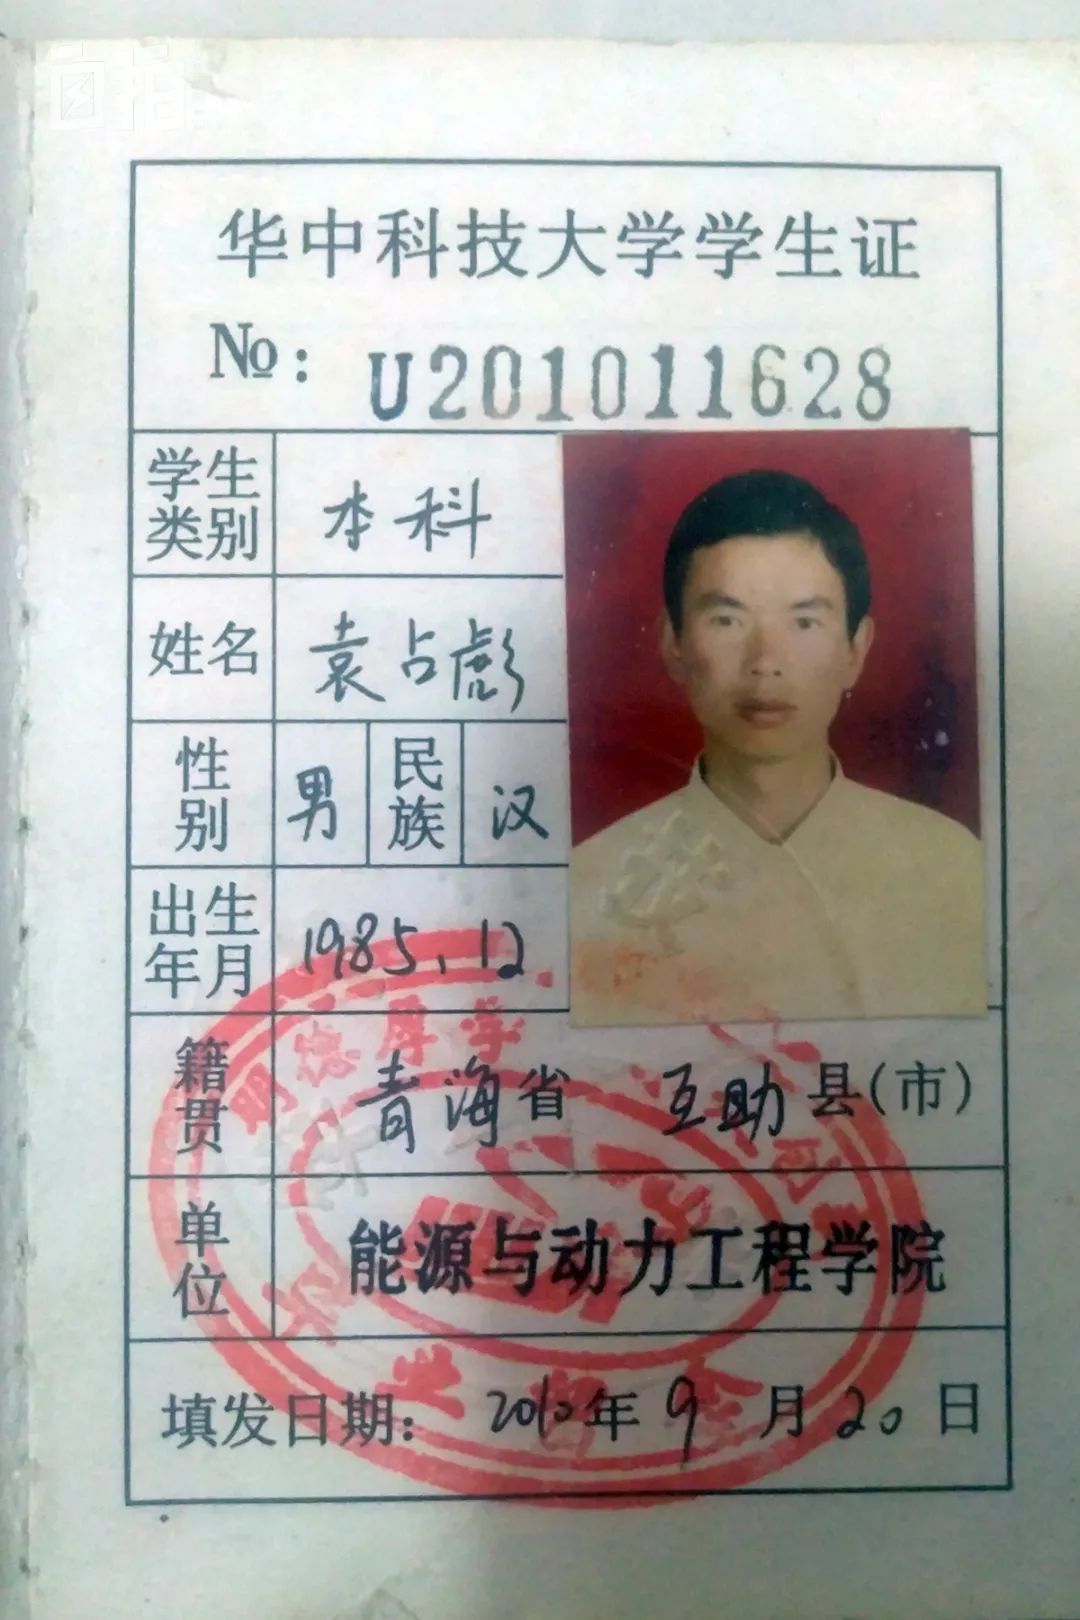 自拍
华中科技大学学生证
№: U201011628
学生类别 本科
姓名 袁占彪
性别 男 民族 汉
出生年月 1985.12
籍贯 青海省 互助县(市)
单位 能源与动力工程学院
填发日期: 2010年9月20日
明德厚学